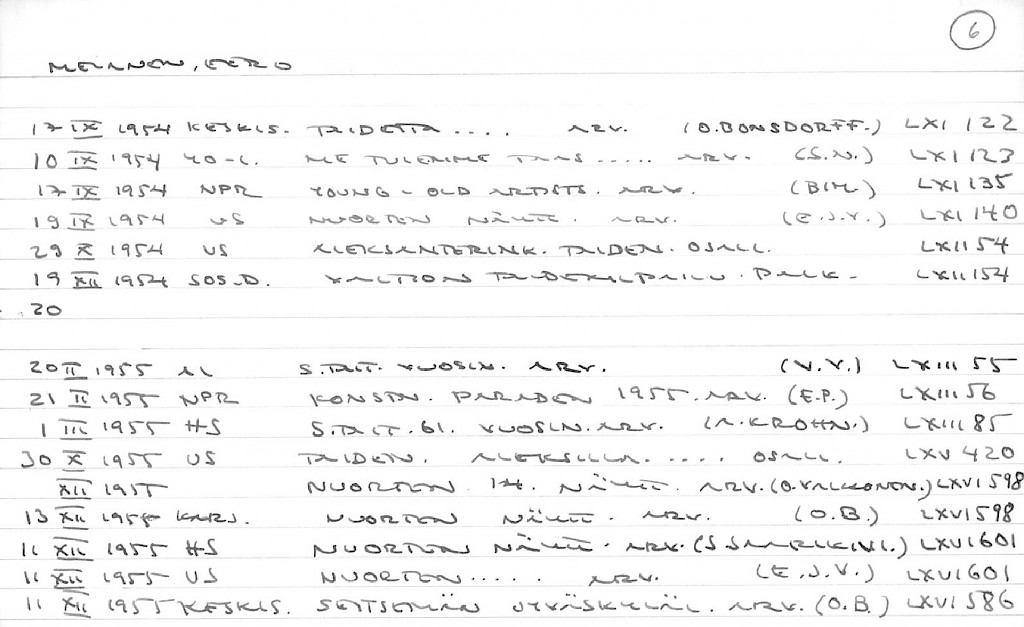 6
MELANEN, EERO
17 IX 1954 KESKIS. TAIDETTA .... ARV. (O.BONSDORFF.) LXI 122
10 IX 1954 YO-L. ME TULEMME TAAS ..... ARV. (S.N.) LXI 123
17 IX 1954 NPR YOUNG - OLD ARTISTS. ARV. (BIM) LXI 135
19 IX 1954 US NUORTEN NÄYTT. ARV. (E.J.V.) LXI 140
29 X 1954 US ALEKSANTERINK. TAIDEN. OSALL. LXII 54
19 XII 1954 SOS.D. VALTION TAIDEKILPAILU. PALK- LXII 154
20
20 II 1955 AL S.TAIT. VUOSIN. ARV. (V.V.) LXIII 55
21 II 1955 NPR KONSTN. PARADEN 1955. ARV. (E.P.) LXIII 56
1 III 1955 HS S.TAIT. 61. VUOSIN. ARV. (A.KROHN.) LXIII 85
30 X 1955 US TAIDEN. ALEKSILLA. .... OSALL. LXV 420
XII 1955 NUORTEN 14. NÄYTT. ARV. (O.VALKONEN.) LXVI 598
13 XII 1955 KARJ. NUORTEN NÄYTT. ARV. (O.B.) LXVI 598
11 XII 1955 HS NUORTEN NÄYTT. ARV. (S SAARIKIVI.) LXVI 601
11 XII 1955 US NUORTEN ..... ARV. (E.J.V.) LXVI 601
11 XII 1955 KESKIS. SEITSEMÄN JYVÄSKYLÄL. ARV. (O.B.) LXVI 586